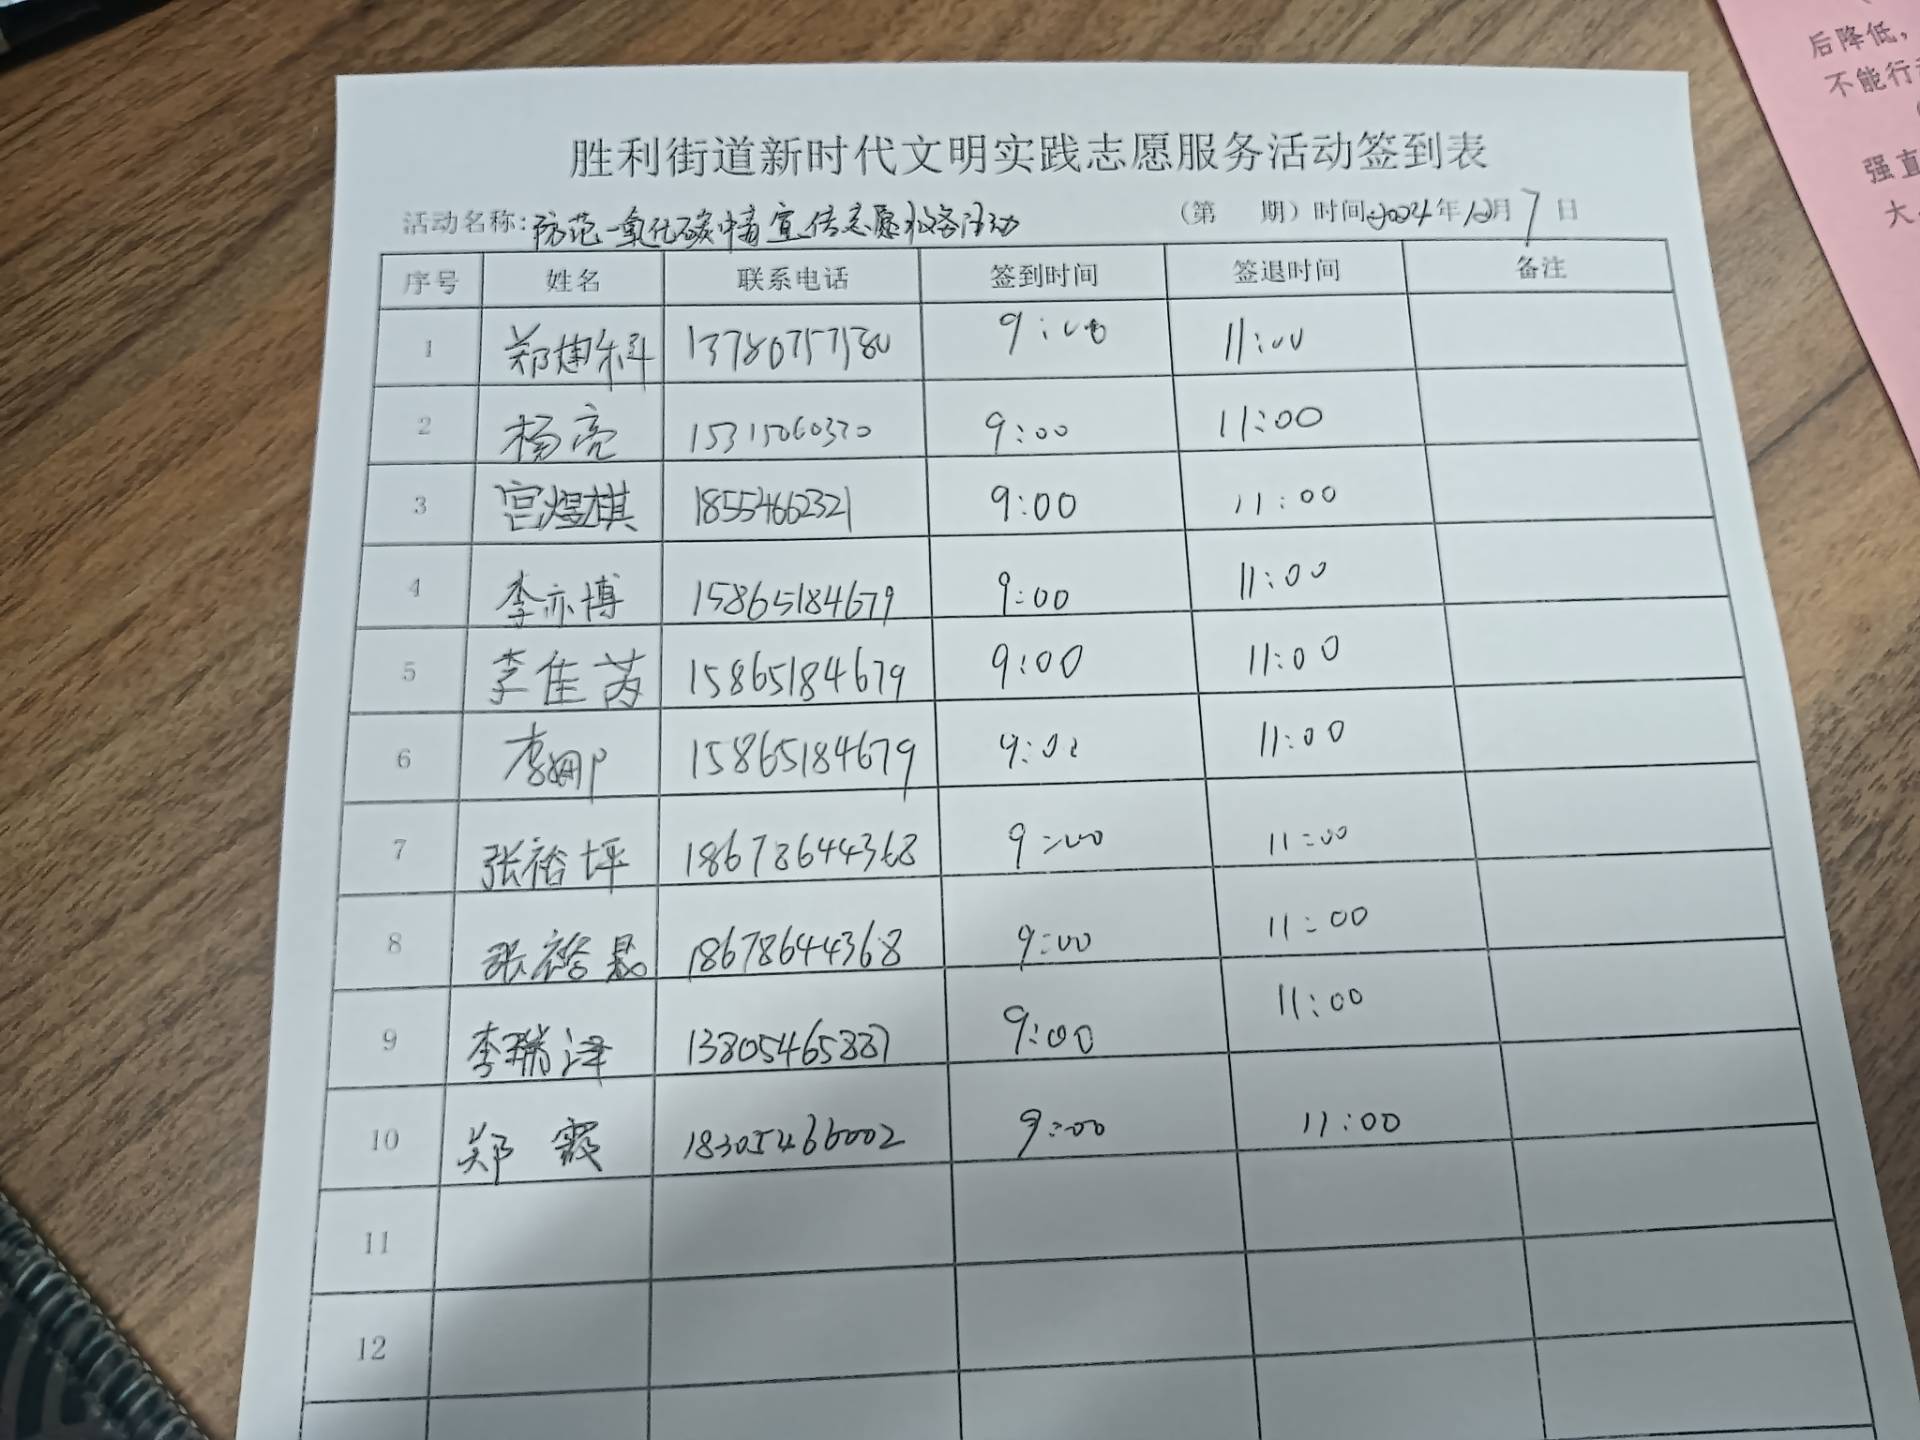 胜利街道新时代文明实践志愿服务活动签到表
活动名称:防范一氧化碳中毒宣传志愿服务活动 (第 期) 时间:2024年12月7日
序号 姓名 联系电话 签到时间 签退时间 备注
1 郑建科 13780757580 9:00 11:00
2 杨亮 15315060370 9:00 11:00
3 宫煜棋 18554662321 9:00 11:00
4 李亦博 15865184679 9:00 11:00
5 李佳芮 15865184679 9:00 11:00
6 李娜 15865184679 9:00 11:00
7 张裕坪 18678644368 9:00 11:00
8 张裕晨 18678644368 9:00 11:00
9 李瑞泽 13805465887 9:00 11:00
10 郑霞 18305466002 9:00 11:00
11
12
后降低,
不能行
强直
大